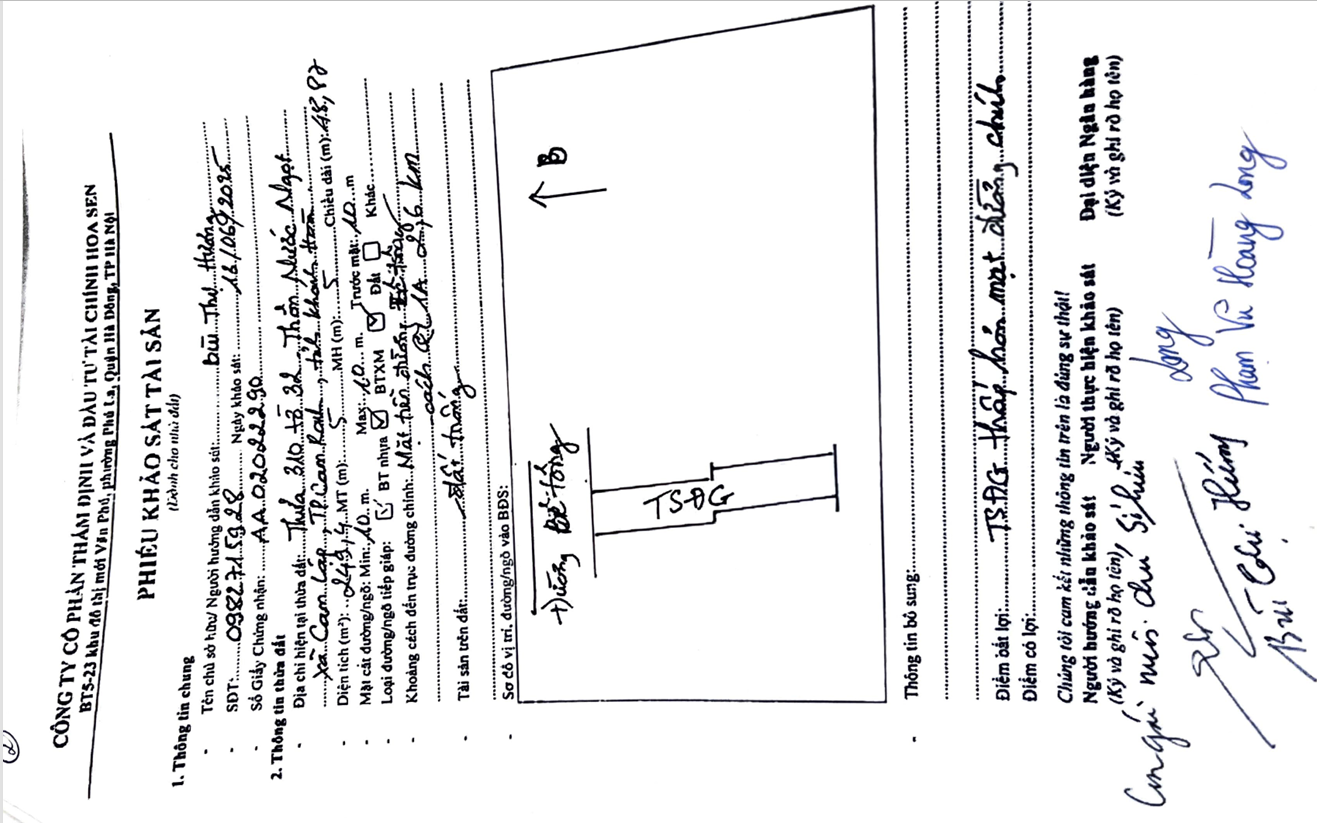 2
CÔNG TY CỔ PHẦN THẨM ĐỊNH VÀ ĐẦU TƯ TÀI CHÍNH HOA SEN
BT5-23 khu đô thị mới Văn Phú, phường Phú La, Quận Hà Đông, TP Hà Nội
PHIẾU KHẢO SÁT TÀI SẢN
(Dành cho nhà đất)
1. Thông tin chung
- Tên chủ sở hữu/ Người hướng dẫn khảo sát: Bùi Thu Hương
- SĐT: 0982715928 Ngày khảo sát: 16/06/2025
- Số Giấy Chứng nhận: AA 02022290
2. Thông tin thửa đất
- Địa chỉ hiện tại thửa đất: Thửa 310 tờ 32, Thôn Nước Ngọt
xã Cam Lập, TP Cam Ranh, tỉnh Khánh Hòa
- Diện tích (m²): 249,4 MT (m): 5 MH (m): 5 Chiều dài (m): 48,87
- Mặt cắt đường/ngõ: Min: 10 m Max: 10 m. Trước mặt: 10 m
- Loại đường/ngõ tiếp giáp: BT nhựa BTXM Đất Khác
- Khoảng cách đến trục đường chính: Mặt tiền đường bê tông
cách QL 1A 2,6 km
- Tài sản trên đất: đất trống
- Sơ đồ vị trí, đường/ngõ vào BĐS:
B
Đường Bê tông
TSĐG
- Thông tin bổ sung:
Điểm bất lợi: TSĐG thấp hơn mặt đường chính
Điểm có lợi:
Chúng tôi cam kết những thông tin trên là đúng sự thật!
Người hướng dẫn khảo sát Người thực hiện khảo sát Đại diện Ngân hàng
(Ký và ghi rõ họ tên) (Ký và ghi rõ họ tên) (Ký và ghi rõ họ tên)
Con gái chủ sở hữu
Long
Phạm Vũ Hoàng Long
Bùi